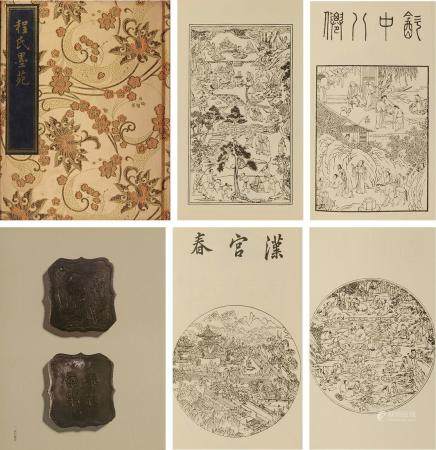 程氏墨苑
飲中八僊
漢宮春